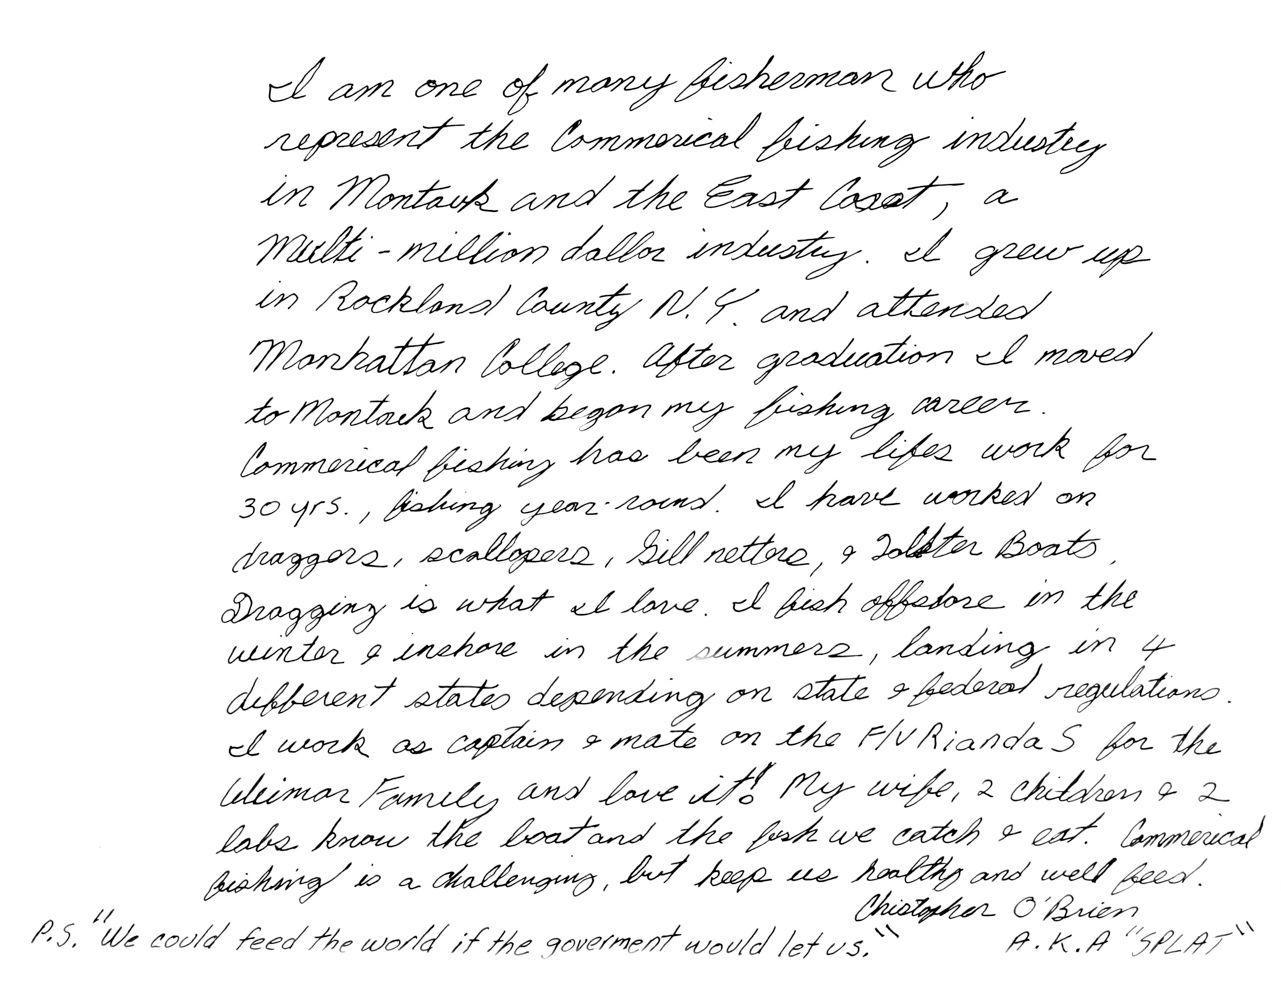 I am one of many fisherman who
represent the Commerical fishing industry
in Montauk and the East Coast, a
Multi-million dollar industry. I grew up
in Rockland County N.Y. and attended
Manhattan College. After graduation I moved
to Montauk and began my fishing career.
Commerical fishing has been my lifes work for
30 yrs., fishing year-round. I have worked on
draggers, scallopers, Gill netters, & Lobster Boats.
Dragging is what I love. I fish offshore in the
winter & inshore in the summers, landing in 4
different states depending on state & federal regulations.
I work as captain & mate on the F/V Rianda S for the
Weimar Family and love it! My wife, 2 children & 2
labs know the boat and the fish we catch & eat. Commerical
fishing is a challenging, but keep us healthy and well feed.
Chistopher O'Brien
P.S. "We could feed the world if the goverment would let us."
A.K.A "SPLAT"